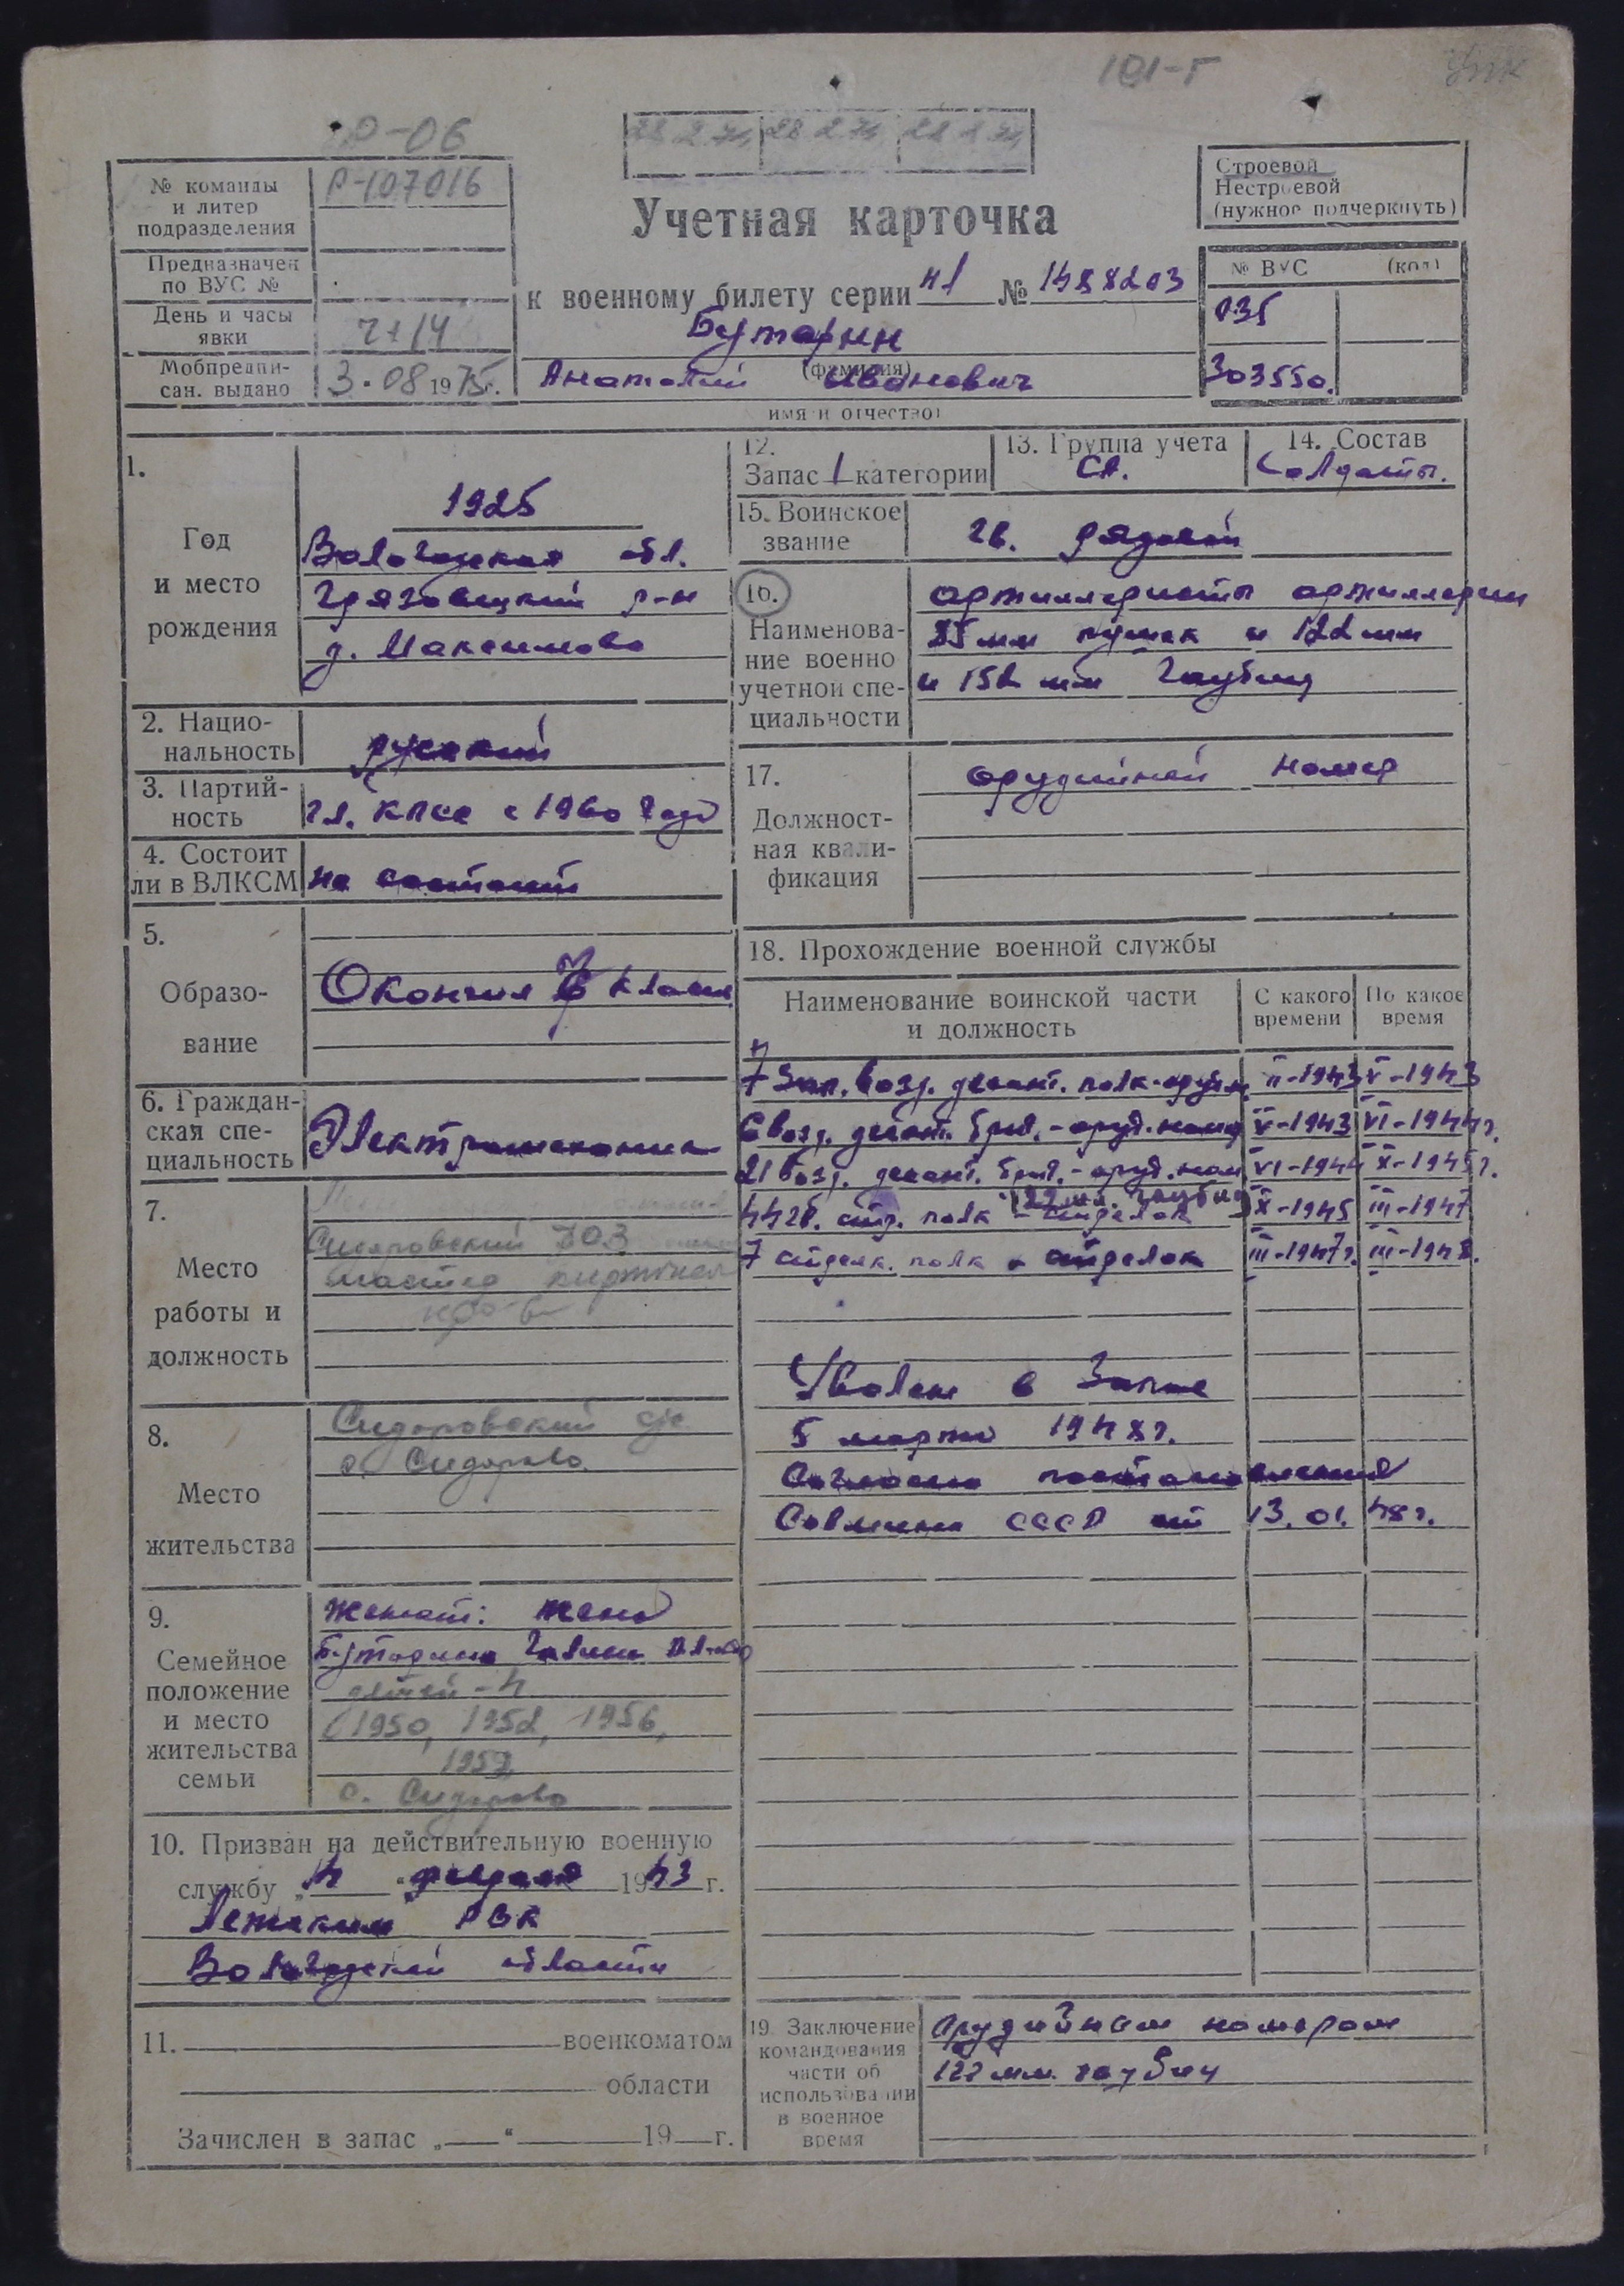 101-Г
Р-06
28 2 74 28 2 74 28 2 74
№ команды и литер подразделения Р-107016
Предназначен по ВУС №
День и часы явки
Ч+14
Мобпредписан. выдано 3.08 1975г.
Учетная карточка
к военному билету серии НЯ № 1488203
Бутарин
(фамилия)
Анатолий Иванович
имя и отчество)
Строевой
Нестроевой
(нужное подчеркнуть)
№ ВУС (код)
035
303550.
1.
Год
и место
рождения
1925
Вологодская обл.
Грязовецкий р-н
д. Максимово
2. Нацио-
нальность
русский
3. Партий-
ность
чл. КПСС с 1960 года
4. Состоит
ли в ВЛКСМ
не состоит
5.
Образо-
вание
Окончил классов
6. Граждан-
ская спе-
циальность
Электромеханик
7.
Место
работы и
должность
Сидоровский
мастер
8.
Место
жительства
Сидоровский с/с
с. Сидорово
9.
Семейное
положение
и место
жительства
семьи
женат: жена
Бутарина Галина
детей - 4
(1950, 1952, 1956,
1959
с. Сидорово
10. Призван на действительную военную
службу „4 “ февраля 1943 г.
Лежским РВК
Вологодской области
11. военкоматом
области
Зачислен в запас „ “ 19 г.
12.
Запас 1 категории
13. Группа учета
СА.
14. Состав
Солдаты.
15. Воинское
звание
гв. рядовой
16.
Наименова-
ние военно
учетной спе-
циальности
артиллеристы артиллерии
85 мм пушек и 122 мм
и 152 мм гаубиц
17.
Должност-
ная квали-
фикация
орудийный номер
18. Прохождение военной службы
Наименование воинской части и должность С какого времени По какое время
7 зап. возд. десант. полк - оруд. н. II-1943 V-1943
6 возд. десант. бриг. - оруд. номер V-1943 VI-1944г.
21 возд. десант. бриг. - оруд. ном VI-1944 X-1945г.
122 мм. гаубиц
442 стр. полк - стрелок X-1945 III-1947
7 стрелк. полк - стрелок III-1947г. III-1948.
Уволен в запас
5 марта 1948г.
Согласно постановления
Совмина СССР от 13.01.48г.
19. Заключение
командования
части об
использовании
в военное
время
Орудийным номером
122 мм. гаубиц